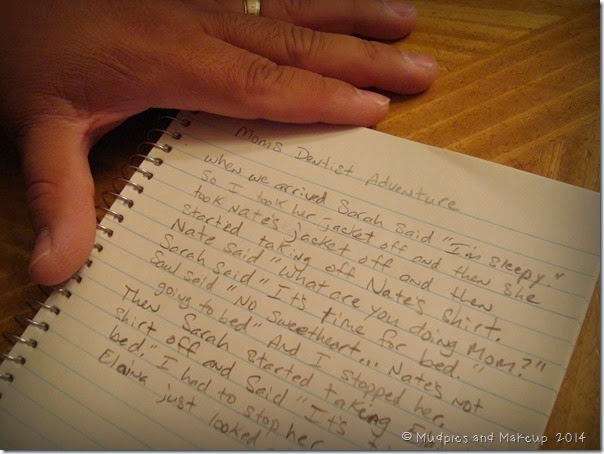 Moms Dentist Adventure
when we arrived Sarah said "I'm sleepy."
So I took her jacket off and then she
took Nate's jacket off and then
started taking off Nate's shirt.
Nate said "What are you doing Mom?"
Sarah said "It's time for bed."
Saul said "No sweetheart... Nate's not
going to bed" And I stopped her.
Then Sarah started taking
shirt off and said "It's
bed." I had to stop her
Elaina just looked
© Mudpies and Makeup 2014